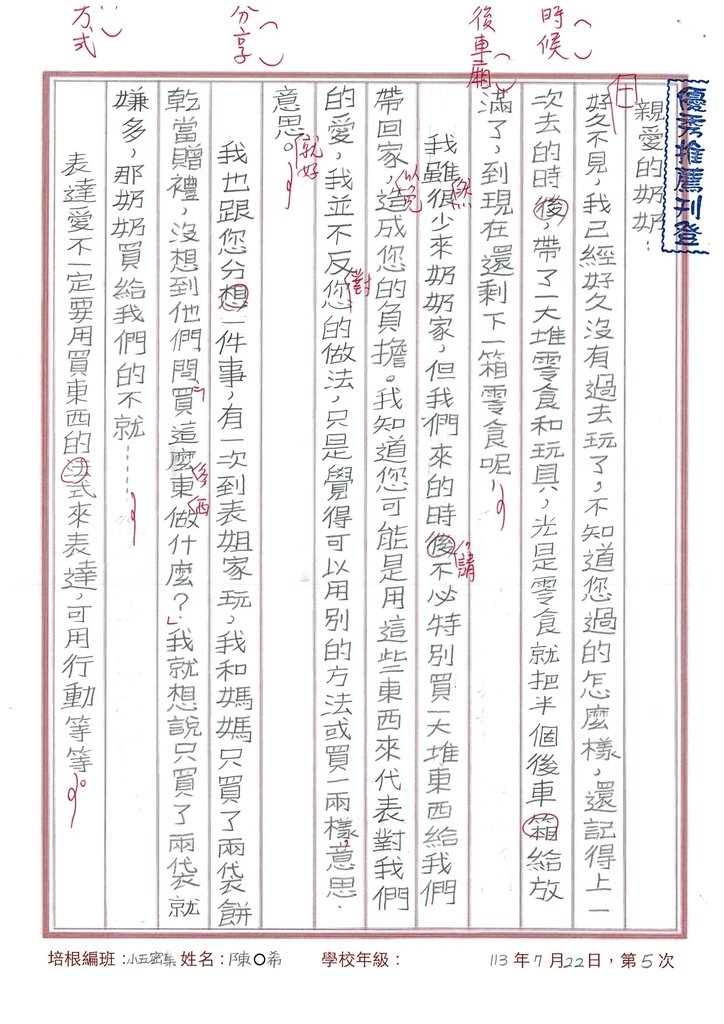 優秀推薦刊登
時候
後車廂
分享
方式
親愛的奶奶：
好久不見，我已經好久沒有過去玩了，不知道您過的怎麼樣，還記得上一
次去的時後，帶了一大堆零食和玩具，光是零食就把半個後車箱給放
滿了，到現在還剩下一箱零食呢！
我雖然很少來奶奶家，但我們來的時後不必特別買一大堆東西給我們
請
帶回家，造成您的負擔。我知道您可能是用這些東西來代表對我們
以免
的愛，我並不反對您的做法，只是覺得可以用別的方法或買一兩樣，意思．
意思。就好
我也跟您分想一件事，有一次到表姐家玩，我和媽媽只買了兩袋餅
乾當贈禮，沒想到他們問：「買這麼多東西做什麼？」我就想說只買了兩袋就
嫌多，那奶奶買給我們的不就……
表達愛不一定要用買東西的法式來表達，可用行動等等。
培根編班：小五密集 姓名：陳○希 學校年級： 113年7月22日，第5次